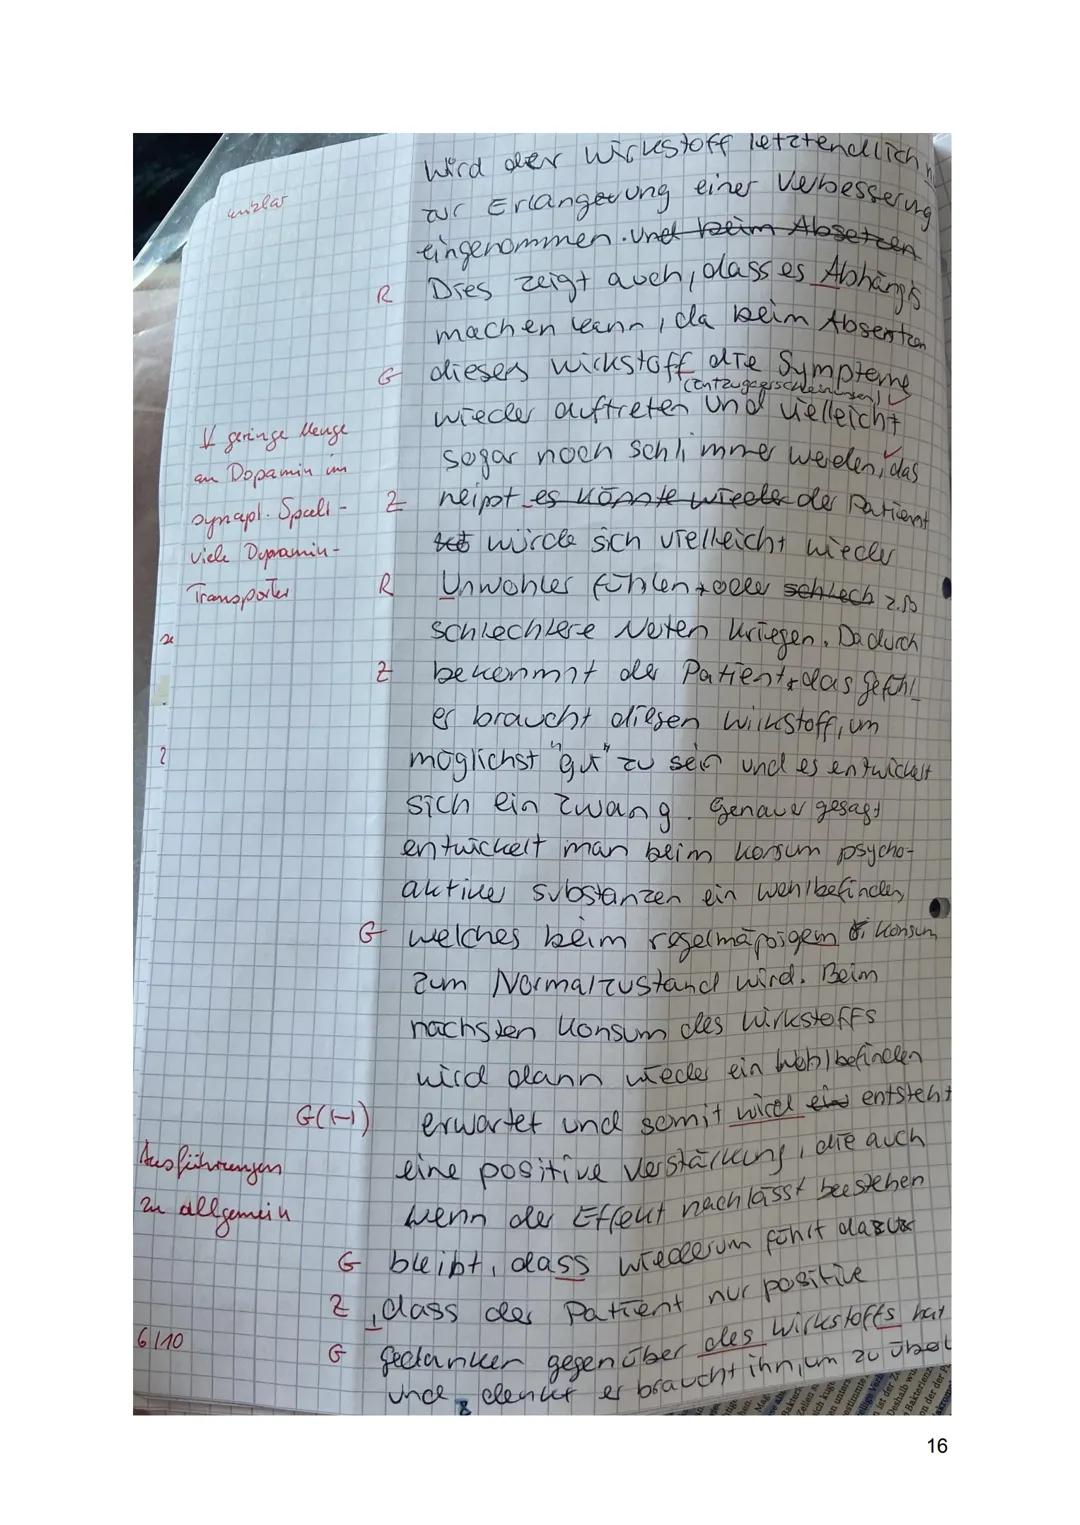 unklar
Wird der Wirkstoff letztendlich
zur Erlangerung einer Verbesserung
eingenommen. und beim Absetzen
R Dies zeigt auch, dass es Abhängig
machen kann, da beim Absentzen
G dieses Wirkstoff die Symptome
(Entzugserscheinungen)
wieder auftreten und vielleicht
sogar noch schlimmer werden, das
Z heißt es könnte wieder der Patient
würde sich vielleicht wieder
R Unwohler fühlen oder schlech z.B
schlechtere Noten kriegen. Dadurch
Z bekommt der Patient das Gefühl
er braucht diesen Wirkstoff, um
möglichst "gut" zu sein und es entwickelt
sich ein Zwang. Genauer gesagt
entwickelt man beim Konsum psycho-
aktiver Substanzen ein Wohlbefinden,
G welches beim regelmäßigem Konsum
zum Normalzustand wird. Beim
nächsten Konsum des Wirkstoffs
wird dann wieder ein Wohlbefinden
G(H) erwartet und somit wird ein entsteht
eine positive Verstärkung, die auch
wenn der Effekt nachlässt beestehen
G bleibt, dass wiederum führt dazu
Z , dass der Patient nur positive
G gedanken gegenüber des Wirkstoffs hat
und denkt er braucht ihn, um zu über
↓ geringe Menge
an Dopamin im
synapt. Spalt -
viele Dopamin-
Transporter
?
Ausführungen
zu allgemein
6/10
8
16